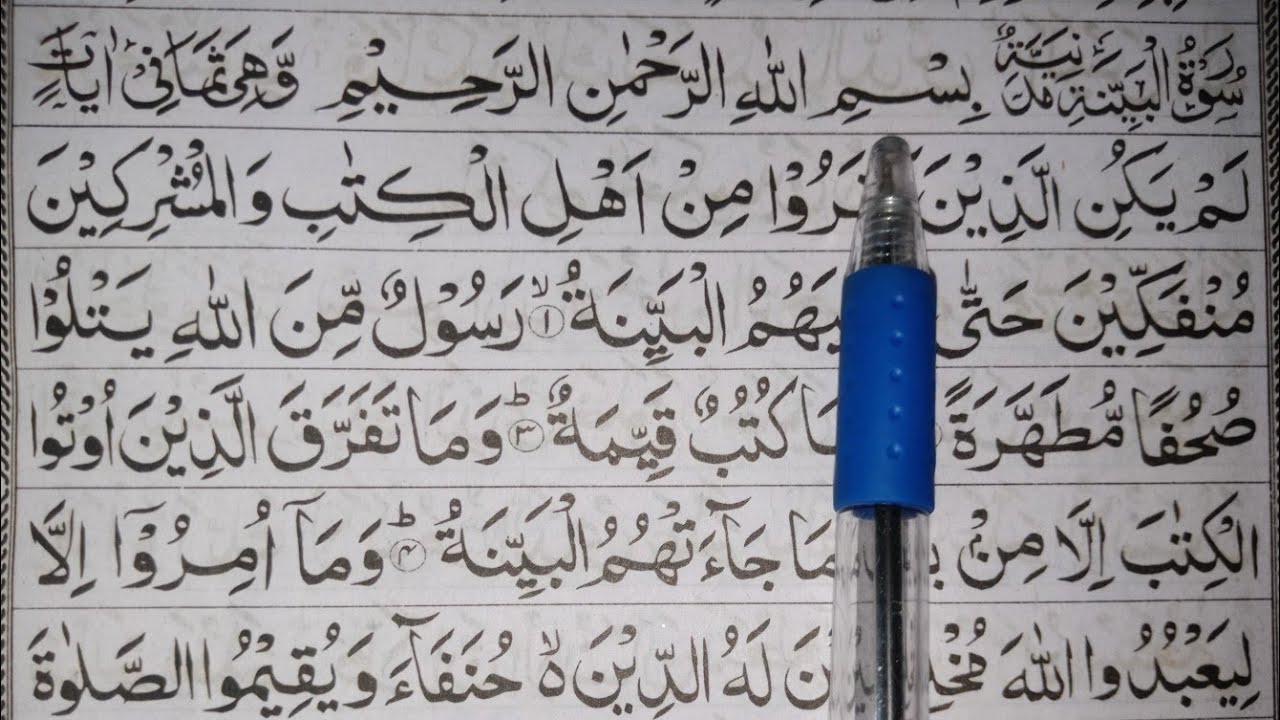 سُوْرَةُ الْبَيِّنَةِ مَدَنِيَّةٌ بِسْمِ اللّٰهِ الرَّحْمٰنِ الرَّحِيْمِ وَّهِىَ ثَمَانِىْ اٰيَاتٍ
لَمْ يَكُنِ الَّذِيْنَ مِنْ اَهْلِ الْكِتٰبِ وَالْمُشْرِكِيْنَ
مُنْفَكِّيْنَ حَتّٰى الْبَيِّنَةُ ۙ۱ رَسُوْلٌ مِّنَ اللّٰهِ يَتْلُوْا
صُحُفًا مُّطَهَّرَةً كُتُبٌ قَيِّمَةٌ ؕ۳ وَمَا تَفَرَّقَ الَّذِيْنَ اُوْتُوا
الْكِتٰبَ اِلَّا مِنْۢ مَا جَآءَتْهُمُ الْبَيِّنَةُ ؕ۴ وَمَآ اُمِرُوْٓا اِلَّا
لِيَعْبُدُوا اللّٰهَ لَهُ الدِّيْنَ ۙ حُنَفَآءَ وَيُقِيْمُوا الصَّلٰوةَ